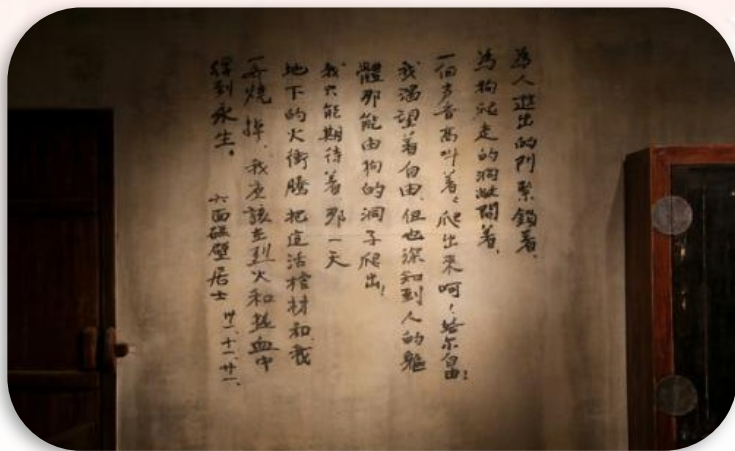 為人進出的門緊鎖着、
為狗爬走的洞敞開着、
一個声音高叫着:爬出來呵!給尔自由!
我渴望着自由、但也深知到人的軀
體那能由狗的洞子爬出!
我只能期待着 那一天
地下的火衝騰 把這活棺材和我
一齊燒掉、我应該在烈火和热血中
得到永生。 六面碰壁居士 卅一.十一.廿一.